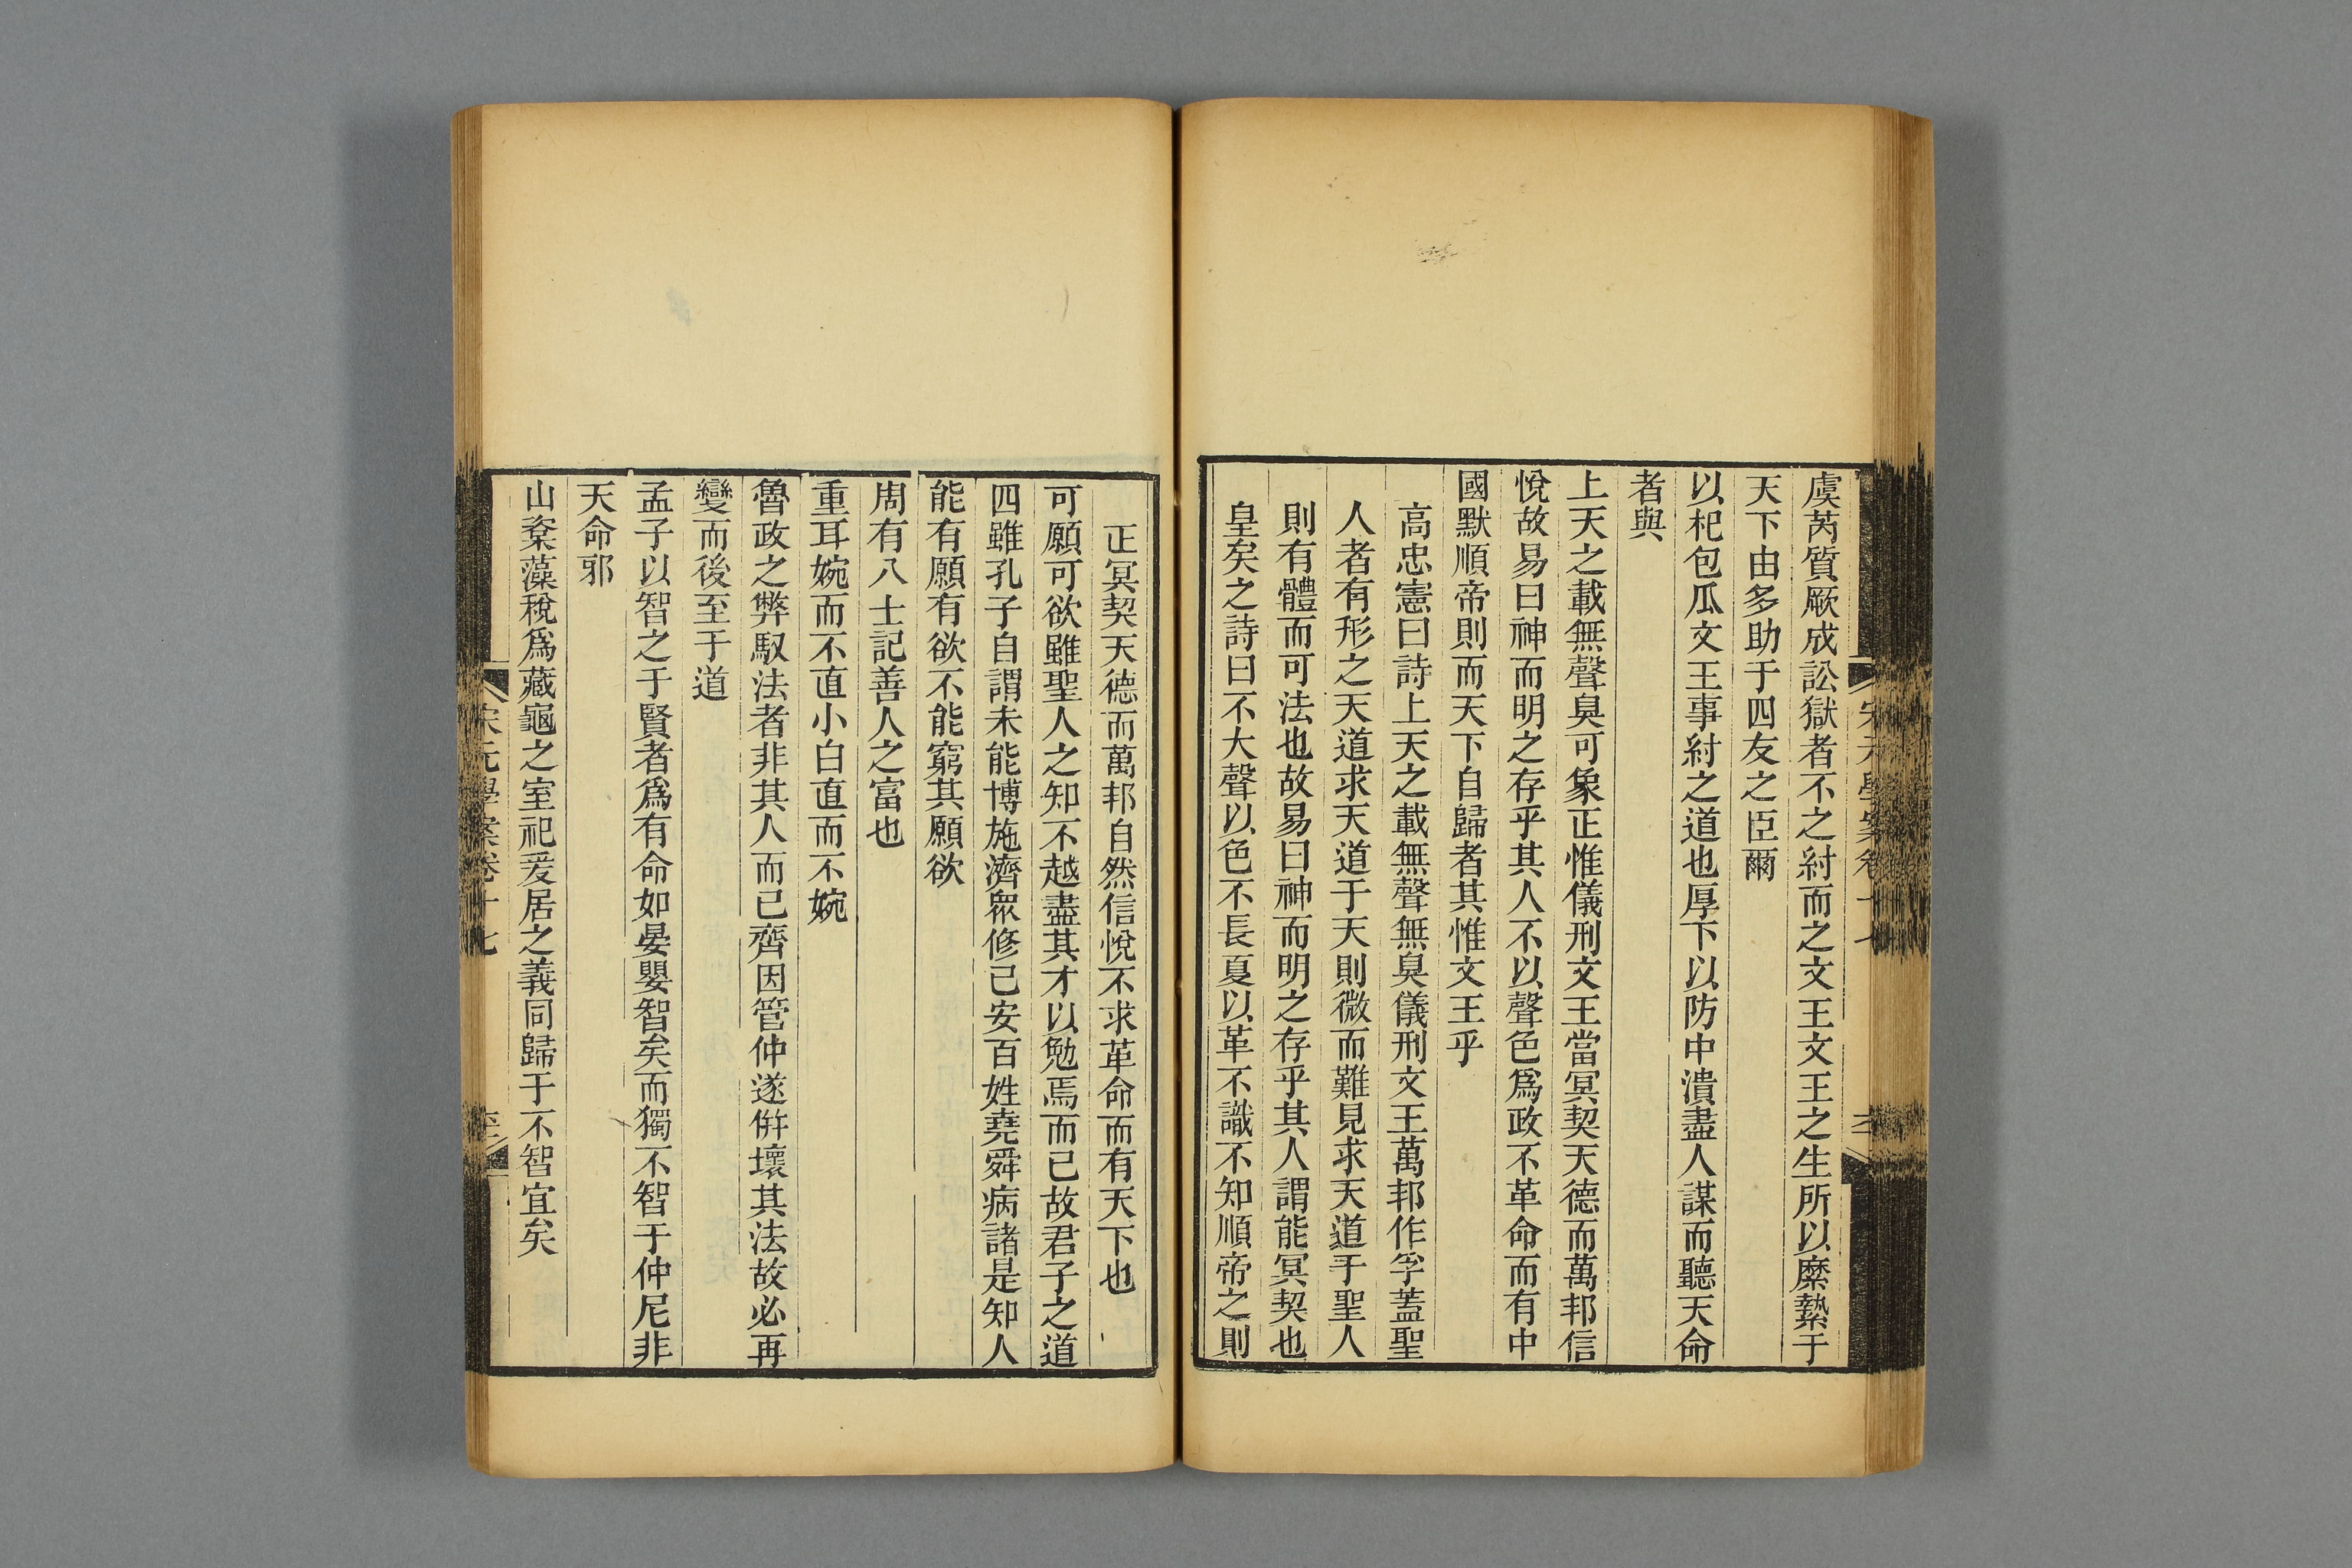 虞芮質厥成訟獄者不之紂而之文王文王之生所以縻縶于
天下由多助于四友之臣爾
以杞包瓜文王事紂之道也厚下以防中潰盡人謀而聽天命
者與
上天之載無聲臭可象正惟儀刑文王當冥契天德而萬邦信
悅故易曰神而明之存乎其人不以聲色爲政不革命而有中
國默順帝則而天下自歸者其惟文王乎
高忠憲曰詩上天之載無聲無臭儀刑文王萬邦作孚蓋聖
人者有形之天道求天道于天則微而難見求天道于聖人
則有體而可法也故易曰神而明之存乎其人謂能冥契也
皇矣之詩曰不大聲以色不長夏以革不識不知順帝之則
正冥契天德而萬邦自然信悅不求革命而有天下也
可願可欲雖聖人之知不越盡其才以勉焉而已故君子之道
四雖孔子自謂未能博施濟眾修己安百姓堯舜病諸是知人
能有願有欲不能窮其願欲
周有八士記善人之富也
重耳婉而不直小白直而不婉
魯政之弊馭法者非其人而已齊因管仲遂併壞其法故必再
變而後至于道
孟子以智之于賢者爲有命如晏嬰智矣而獨不智于仲尼非
天命邪
山楶藻梲爲藏龜之室祀爰居之義同歸于不智宜矣
宋元學案卷十七